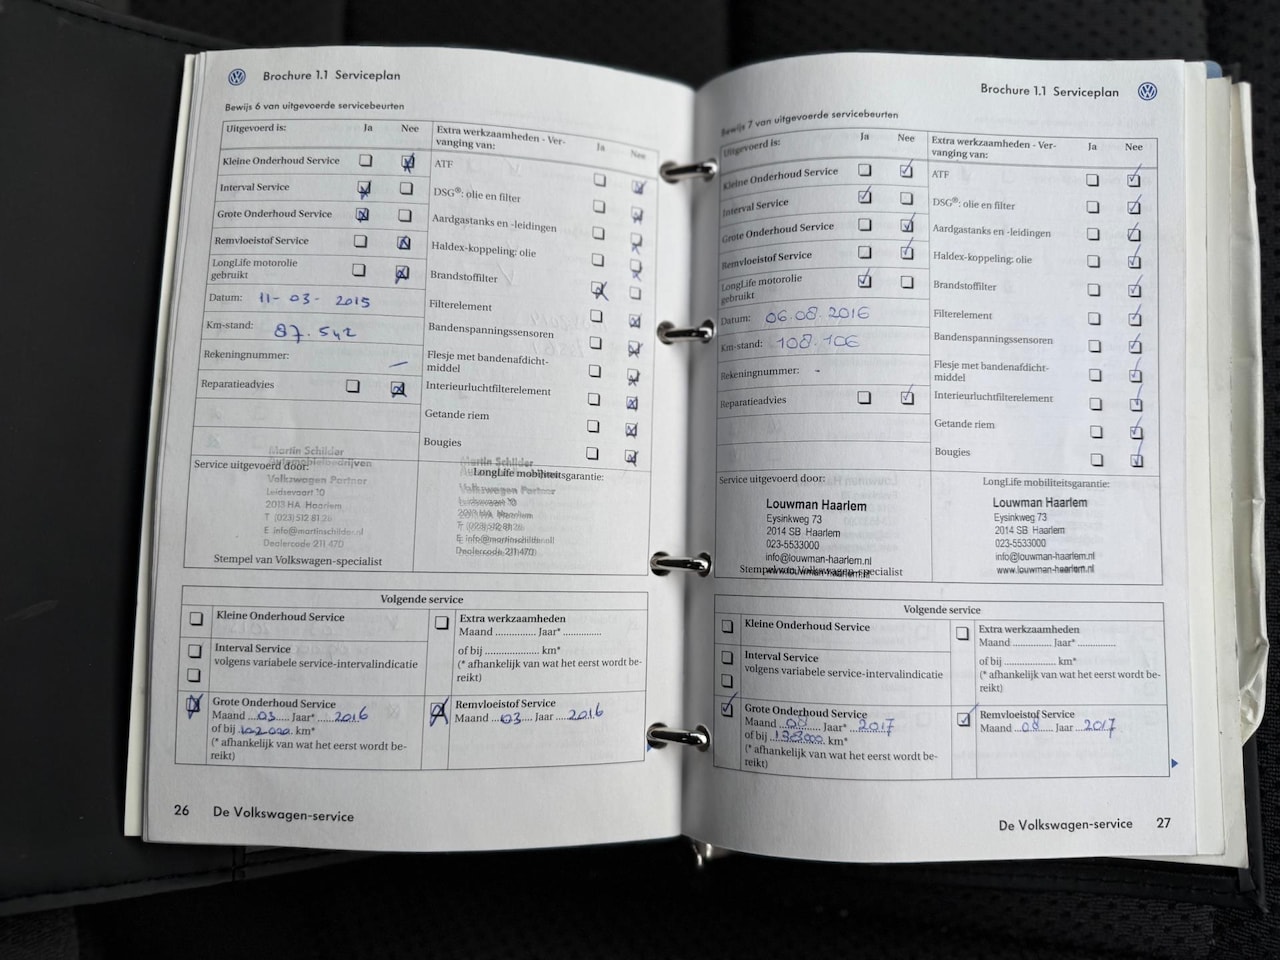 Brochure 1.1 Serviceplan
Bewijs 6 van uitgevoerde servicebeurten
Uitgevoerd is: Ja Nee
Kleine Onderhoud Service
Interval Service
Grote Onderhoud Service
Remvloeistof Service
LongLife motorolie
gebruikt
Datum: 11-03-2015
Km-stand: 87.542
Rekeningnummer: —
Reparatieadvies
Extra werkzaamheden - Ver-
vanging van: Ja Nee
ATF
DSG®: olie en filter
Aardgastanks en -leidingen
Haldex-koppeling: olie
Brandstoffilter
Filterelement
Bandenspanningssensoren
Flesje met bandenafdicht-
middel
Interieurluchtfilterelement
Getande riem
Bougies
Service uitgevoerd door:
Martin Schilder
Automobielbedrijven
Volkswagen Partner
Leidsevaart 10
2013 HA Haarlem
T (023) 512 81 26
E info@martinschilder.nl
Dealercode 211 470
Stempel van Volkswagen-specialist
LongLife mobiliteitsgarantie:
Martin Schilder
Volkswagen Partner
Leidsevaart 10
2013 HA Haarlem
T (023) 512 81 26
E info@martinschilder.nl
Dealercode 211 470
Volgende service
Kleine Onderhoud Service
Interval Service
volgens variabele service-intervalindicatie
Grote Onderhoud Service
Maand ...03... Jaar* ...2016
of bij ...102.000... km*
(* afhankelijk van wat het eerst wordt be-
reikt)
Extra werkzaamheden
Maand ............... Jaar* ..............
of bij .................... km*
(* afhankelijk van wat het eerst wordt be-
reikt)
Remvloeistof Service
Maand ...03... Jaar ...2016
26 De Volkswagen-service
Brochure 1.1 Serviceplan
Bewijs 7 van uitgevoerde servicebeurten
Uitgevoerd is: Ja Nee
Kleine Onderhoud Service
Interval Service
Grote Onderhoud Service
Remvloeistof Service
LongLife motorolie
gebruikt
Datum: 06.08.2016
Km-stand: 108.106
Rekeningnummer: -
Reparatieadvies
Extra werkzaamheden - Ver-
vanging van: Ja Nee
ATF
DSG®: olie en filter
Aardgastanks en -leidingen
Haldex-koppeling: olie
Brandstoffilter
Filterelement
Bandenspanningssensoren
Flesje met bandenafdicht-
middel
Interieurluchtfilterelement
Getande riem
Bougies
Service uitgevoerd door:
Louwman Haarlem
Eysinkweg 73
2014 SB Haarlem
023-5533000
info@louwman-haarlem.nl
www.louwman-haarlem.nl
Stempel van Volkswagen-specialist
LongLife mobiliteitsgarantie:
Louwman Haarlem
Eysinkweg 73
2014 SB Haarlem
023-5533000
info@louwman-haarlem.nl
www.louwman-haarlem.nl
Volgende service
Kleine Onderhoud Service
Interval Service
volgens variabele service-intervalindicatie
Grote Onderhoud Service
Maand ...08... Jaar* ...2017
of bij ...138000... km*
(* afhankelijk van wat het eerst wordt be-
reikt)
Extra werkzaamheden
Maand ............... Jaar* ..............
of bij .................... km*
(* afhankelijk van wat het eerst wordt be-
reikt)
Remvloeistof Service
Maand ...08... Jaar ...2017
De Volkswagen-service 27